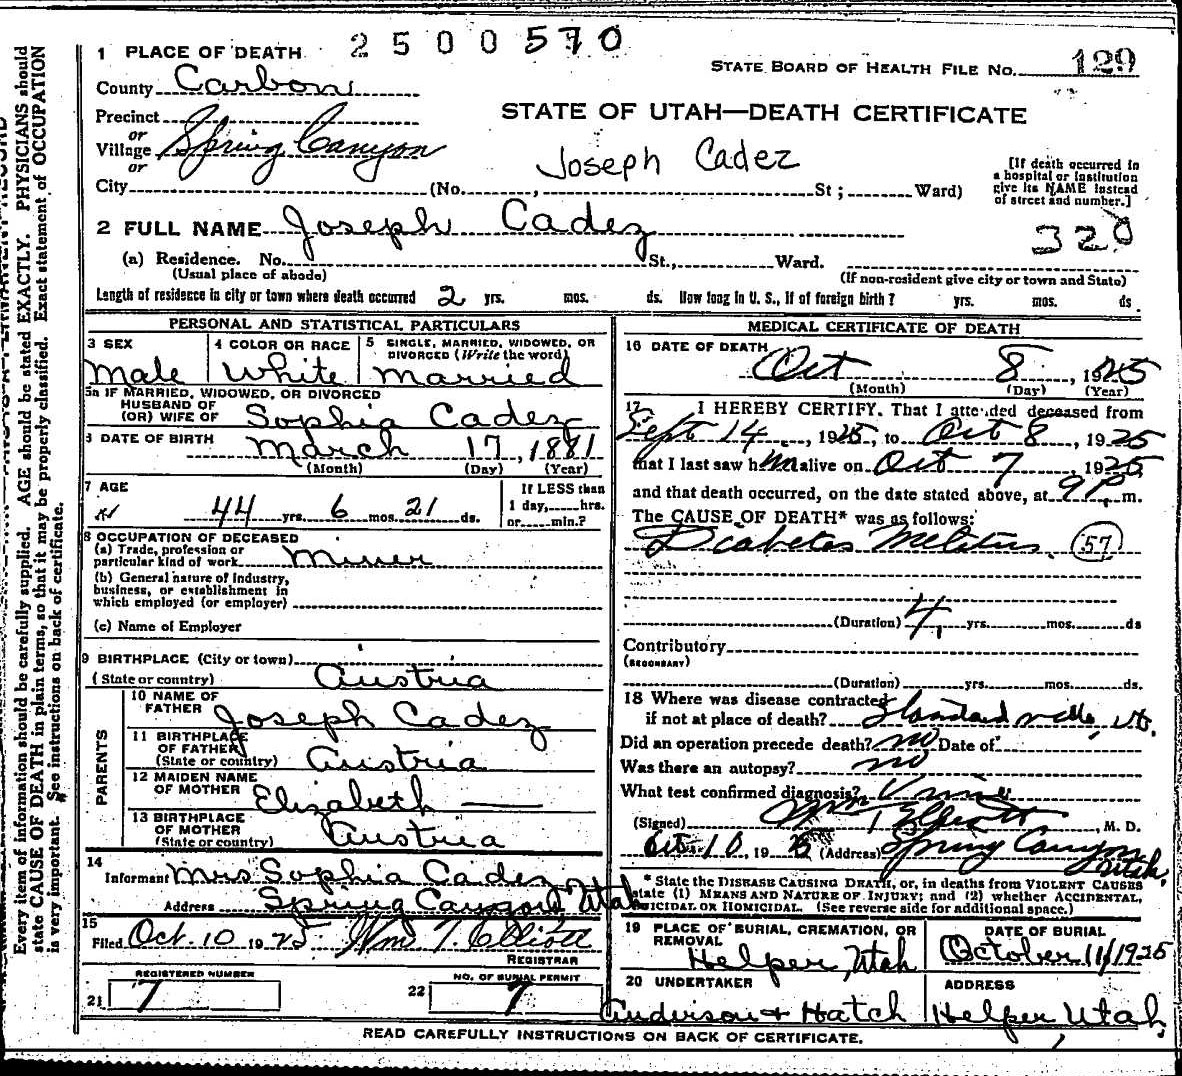 2500570
1 PLACE OF DEATH
STATE BOARD OF HEALTH FILE NO. 129
County Carbon
STATE OF UTAH—DEATH CERTIFICATE
Precinct
or
Village Spring Canyon
or
Joseph Cadez
City (No. , St ; Ward)
[If death occurred in
a hospital or institution
give its NAME instead
of street and number.]
2 FULL NAME Joseph Cadez
320
(a) Residence. No. St., Ward.
(Usual place of abode)
(If non-resident give city or town and State)
Length of residence in city or town where death occurred 2 yrs. mos. ds. How long in U. S., if of foreign birth? yrs. mos. ds
PERSONAL AND STATISTICAL PARTICULARS
3 SEX
Male
4 COLOR OR RACE
White
5 SINGLE, MARRIED, WIDOWED, OR
DIVORCED (Write the word)
Married
5a IF MARRIED, WIDOWED, OR DIVORCED
HUSBAND OF
(OR) WIFE OF Sophia Cadez
6 DATE OF BIRTH March 17, 1881
(Month) (Day) (Year)
7 AGE
44 yrs. 6 mos. 21 ds.
If LESS than
1 day, hrs.
or min.?
8 OCCUPATION OF DECEASED
(a) Trade, profession or
particular kind of work Miner
(b) General nature of Industry,
business, or establishment in
which employed (or employer)
(c) Name of Employer
9 BIRTHPLACE (City or town)
(State or country) Austria
PARENTS
10 NAME OF
FATHER Joseph Cadez
11 BIRTHPLACE
OF FATHER
(State or country) Austria
12 MAIDEN NAME
OF MOTHER Elizabeth
13 BIRTHPLACE
OF MOTHER
(State or country) Austria
14
Informant Mrs Sophia Cadez
Address Spring Canyon, Utah
15
Filed Oct. 10 1925 Wm T. Elliott
REGISTRAR
REGISTERED NUMBER
21 7
NO. OF BURIAL PERMIT
22 7
MEDICAL CERTIFICATE OF DEATH
16 DATE OF DEATH
Oct 8, 1925
(Month) (Day) (Year)
17 I HEREBY CERTIFY. That I attended deceased from
Sept 14, 1925, to Oct 8, 1925
that I last saw him alive on Oct 7, 1925
and that death occurred, on the date stated above, at 9 P. m.
The CAUSE OF DEATH* was as follows:
Diabetes Melitus. 57
(Duration) 4 yrs. mos. ds
Contributory
(SECONDARY)
(Duration) yrs. mos. ds.
18 Where was disease contracted
if not at place of death? Standardville, Ut.
Did an operation precede death? no Date of
Was there an autopsy? no
What test confirmed diagnosis? Urine
(Signed) Wm T Elliott, M. D.
Oct 10, 1925 (Address) Spring Canyon
Utah.
* State the DISEASE CAUSING DEATH, or, in deaths from VIOLENT CAUSES
state (1) MEANS AND NATURE OF INJURY; and (2) whether ACCIDENTAL,
SUICIDAL OR HOMICIDAL. (See reverse side for additional space.)
19 PLACE OF BURIAL, CREMATION, OR
REMOVAL
Helper, Utah
DATE OF BURIAL
October 11/1925
20 UNDERTAKER
Anderson + Hatch
ADDRESS
Helper, Utah,
READ CAREFULLY INSTRUCTIONS ON BACK OF CERTIFICATE.
Every item of information should be carefully supplied. AGE should be stated EXACTLY. PHYSICIANS should
state CAUSE OF DEATH in plain terms, so that it may be properly classified. Exact statement of OCCUPATION
is very important. See instructions on back of certificate.